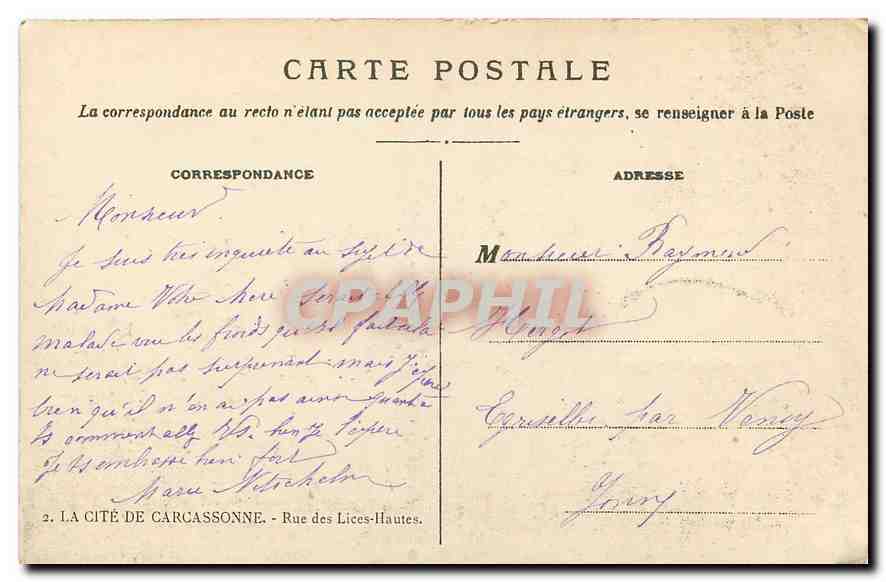 CARTE POSTALE
La correspondance au recto n'étant pas acceptée par tous les pays étrangers, se renseigner à la Poste
CORRESPONDANCE
Monsieur
Je suis très inquiète au sujet de
Madame Votre Mère serait elle
malade vue les froids qu'il fait cela
ne serait pas surprenant mais j'espère
bien qu'il n'en ai pas ainsi quant à
Vs comment allez Vs. bien je l'espère
Je Vs embrasse bien fort
Marie
2. LA CITÉ DE CARCASSONNE. - Rue des Lices-Hautes.
ADRESSE
Monsieur Raymond
Egriselles par Venoy
Yonne
CPAPHIL